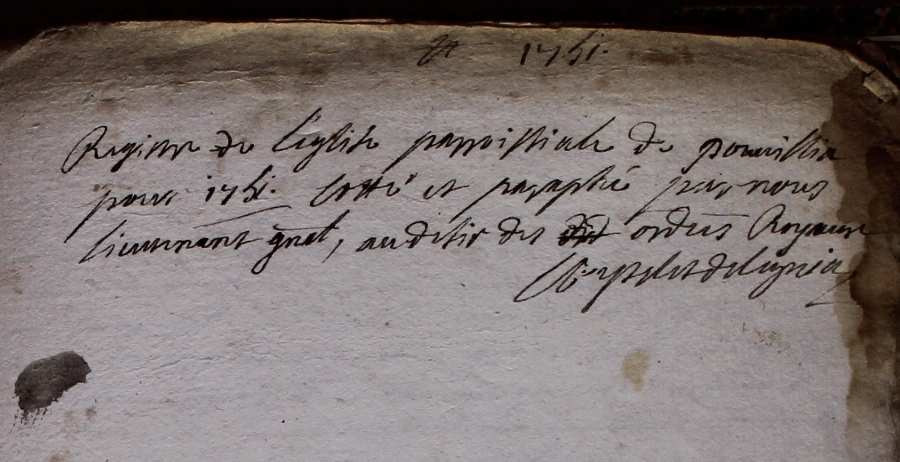 1751.
Registre de l'eglise parroissiale de pouvillia
pour 1751. Cotté et paraphé par nous
lieutenant gnal, au desir des ordres Royaux